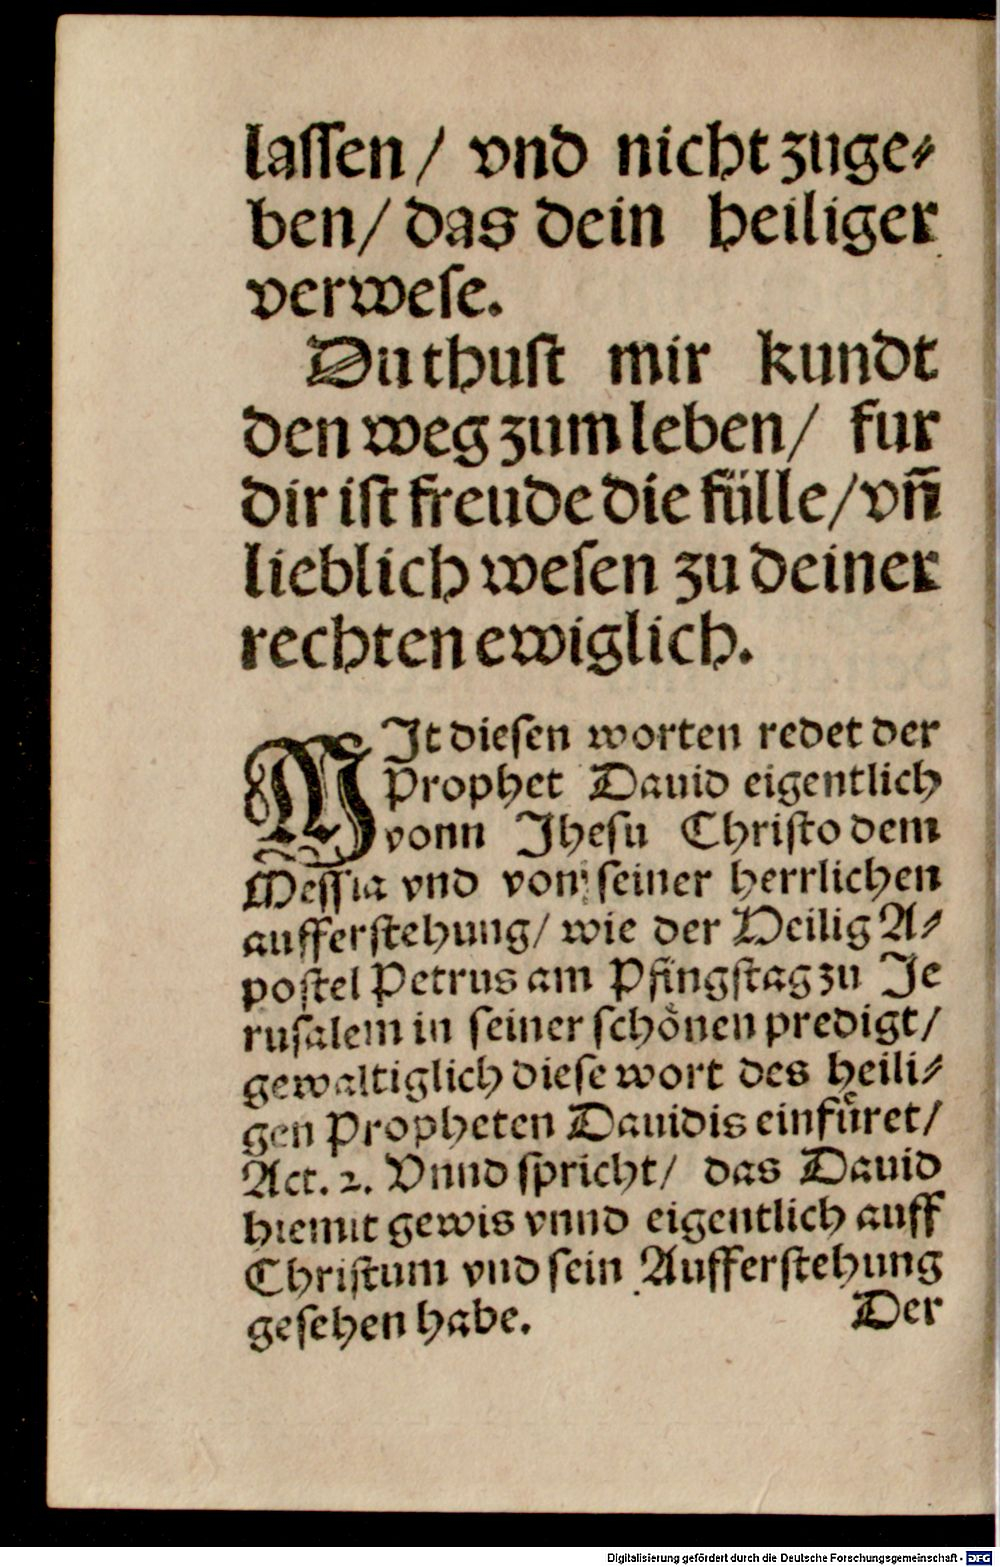 laſſen/ vnd nicht zuge⸗
ben/ das dein heiliger
verweſe.
Du thuſt mir kundt
den weg zum leben/ fur
dir iſt freude die fülle/ vñ
lieblich weſen zu deiner
rechten ewiglich.
MIt dieſen worten redet der
Prophet Dauid eigentlich
vonn Jheſu Chriſto dem
Meſſia vnd von ſeiner herrlichen
aufferſtehung/ wie der Heilig A⸗
poſtel Petrus am Pfingſtag zu Je
ruſalem in ſeiner ſchönen predigt/
gewaltiglich dieſe wort des heili⸗
gen Propheten Dauidis einfuͤret/
Act. 2. Vnnd ſpricht/ das Dauid
hiemit gewis vnnd eigentlich auff
Chriſtum vnd ſein Aufferſtehung
geſehen habe.
Der
Digitalisierung gefördert durch die Deutsche Forschungsgemeinschaft - DFG